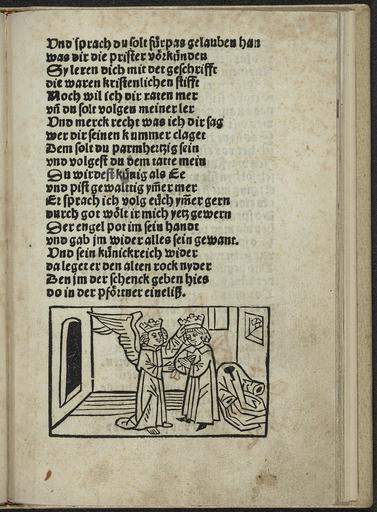 Vnd sprach du solt fürpas gelauben han
was dir die prister vörkünden
Sy leren dich mit der geschrifft
die waren kristenlichen stifft
Noch wil ich dir raten mer
vn̄ du solt volgen meiner ler
Vnd merck recht was ich dir sag
wer dir seinen kummer claget
Dem solt du parmhertzig sein
vnd volgest du dem ratte mein
Du wirdest künig als Ee
vnd pist gewalttig ym̄er mer
Er sprach ich volg eüch ym̄er gern
durch got wölt ir mich yetz gewern
Der engel pot im sein handt
vnd gab jm wider alles sein gewant.
Vnd sein künickreich wider
da leget er den alten rock nyder
Den jm der schenck geben hies
do in der pförtner eineliß.